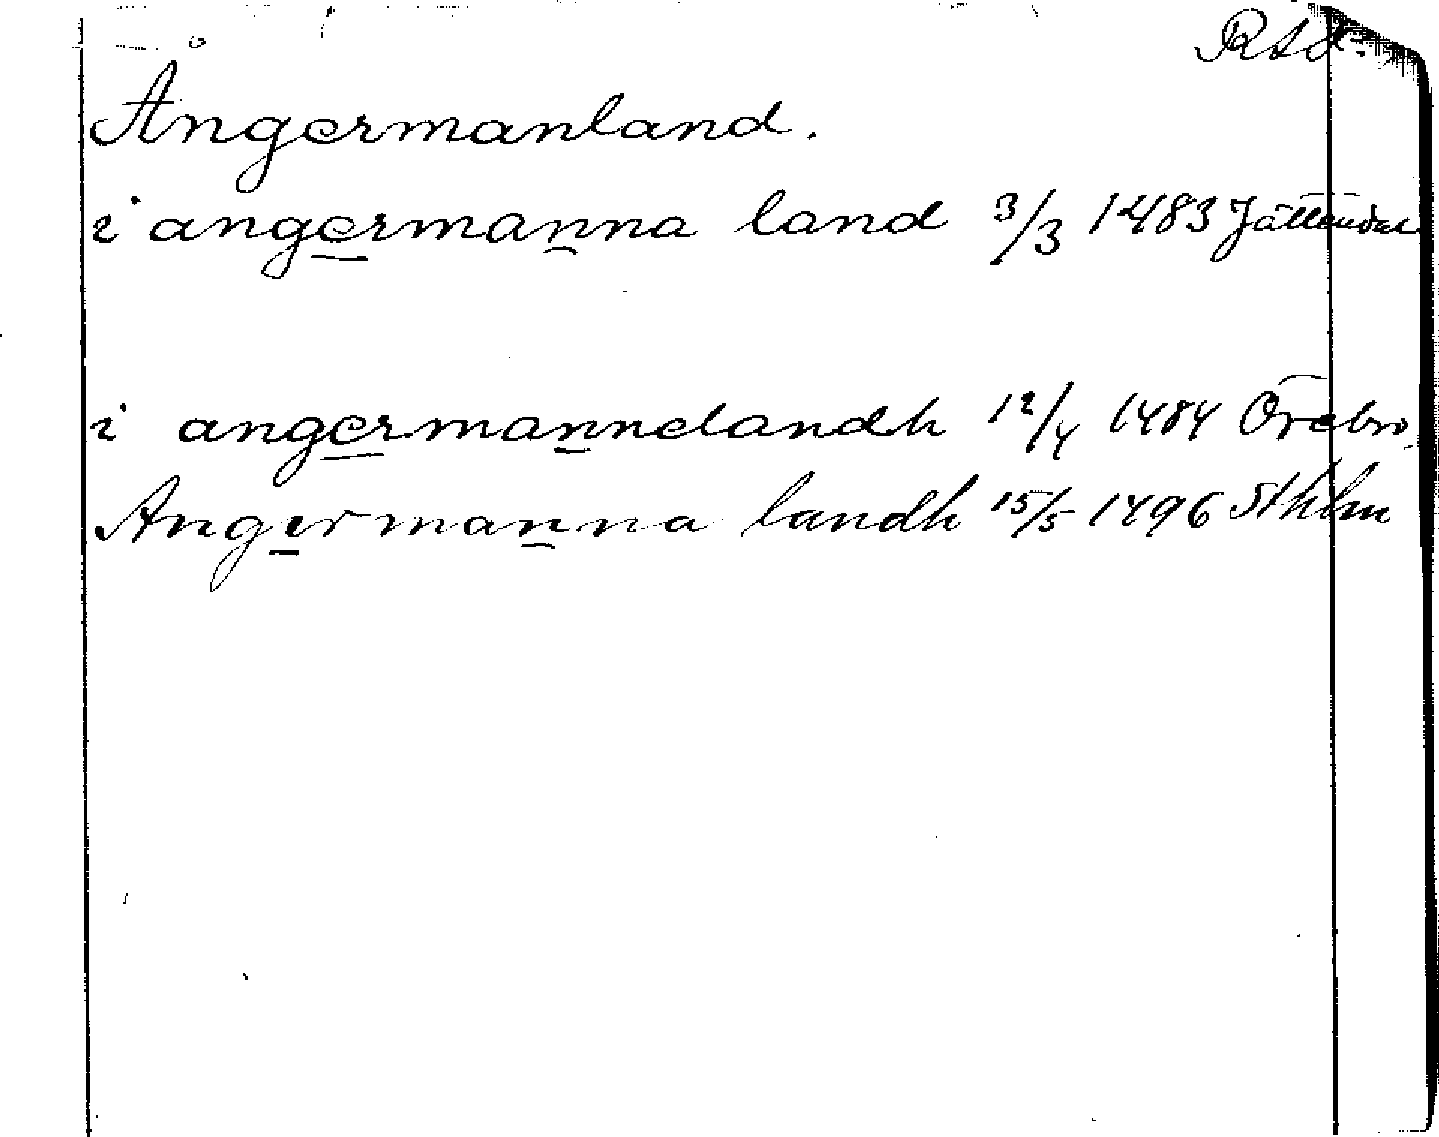 Rtd.
Ångermanland.
i angermanna land 3/3 1483 Jättendal
i angermannelandh 12/4 1484 Örebro
Angermanna landh 15/5 1496 Sthlm